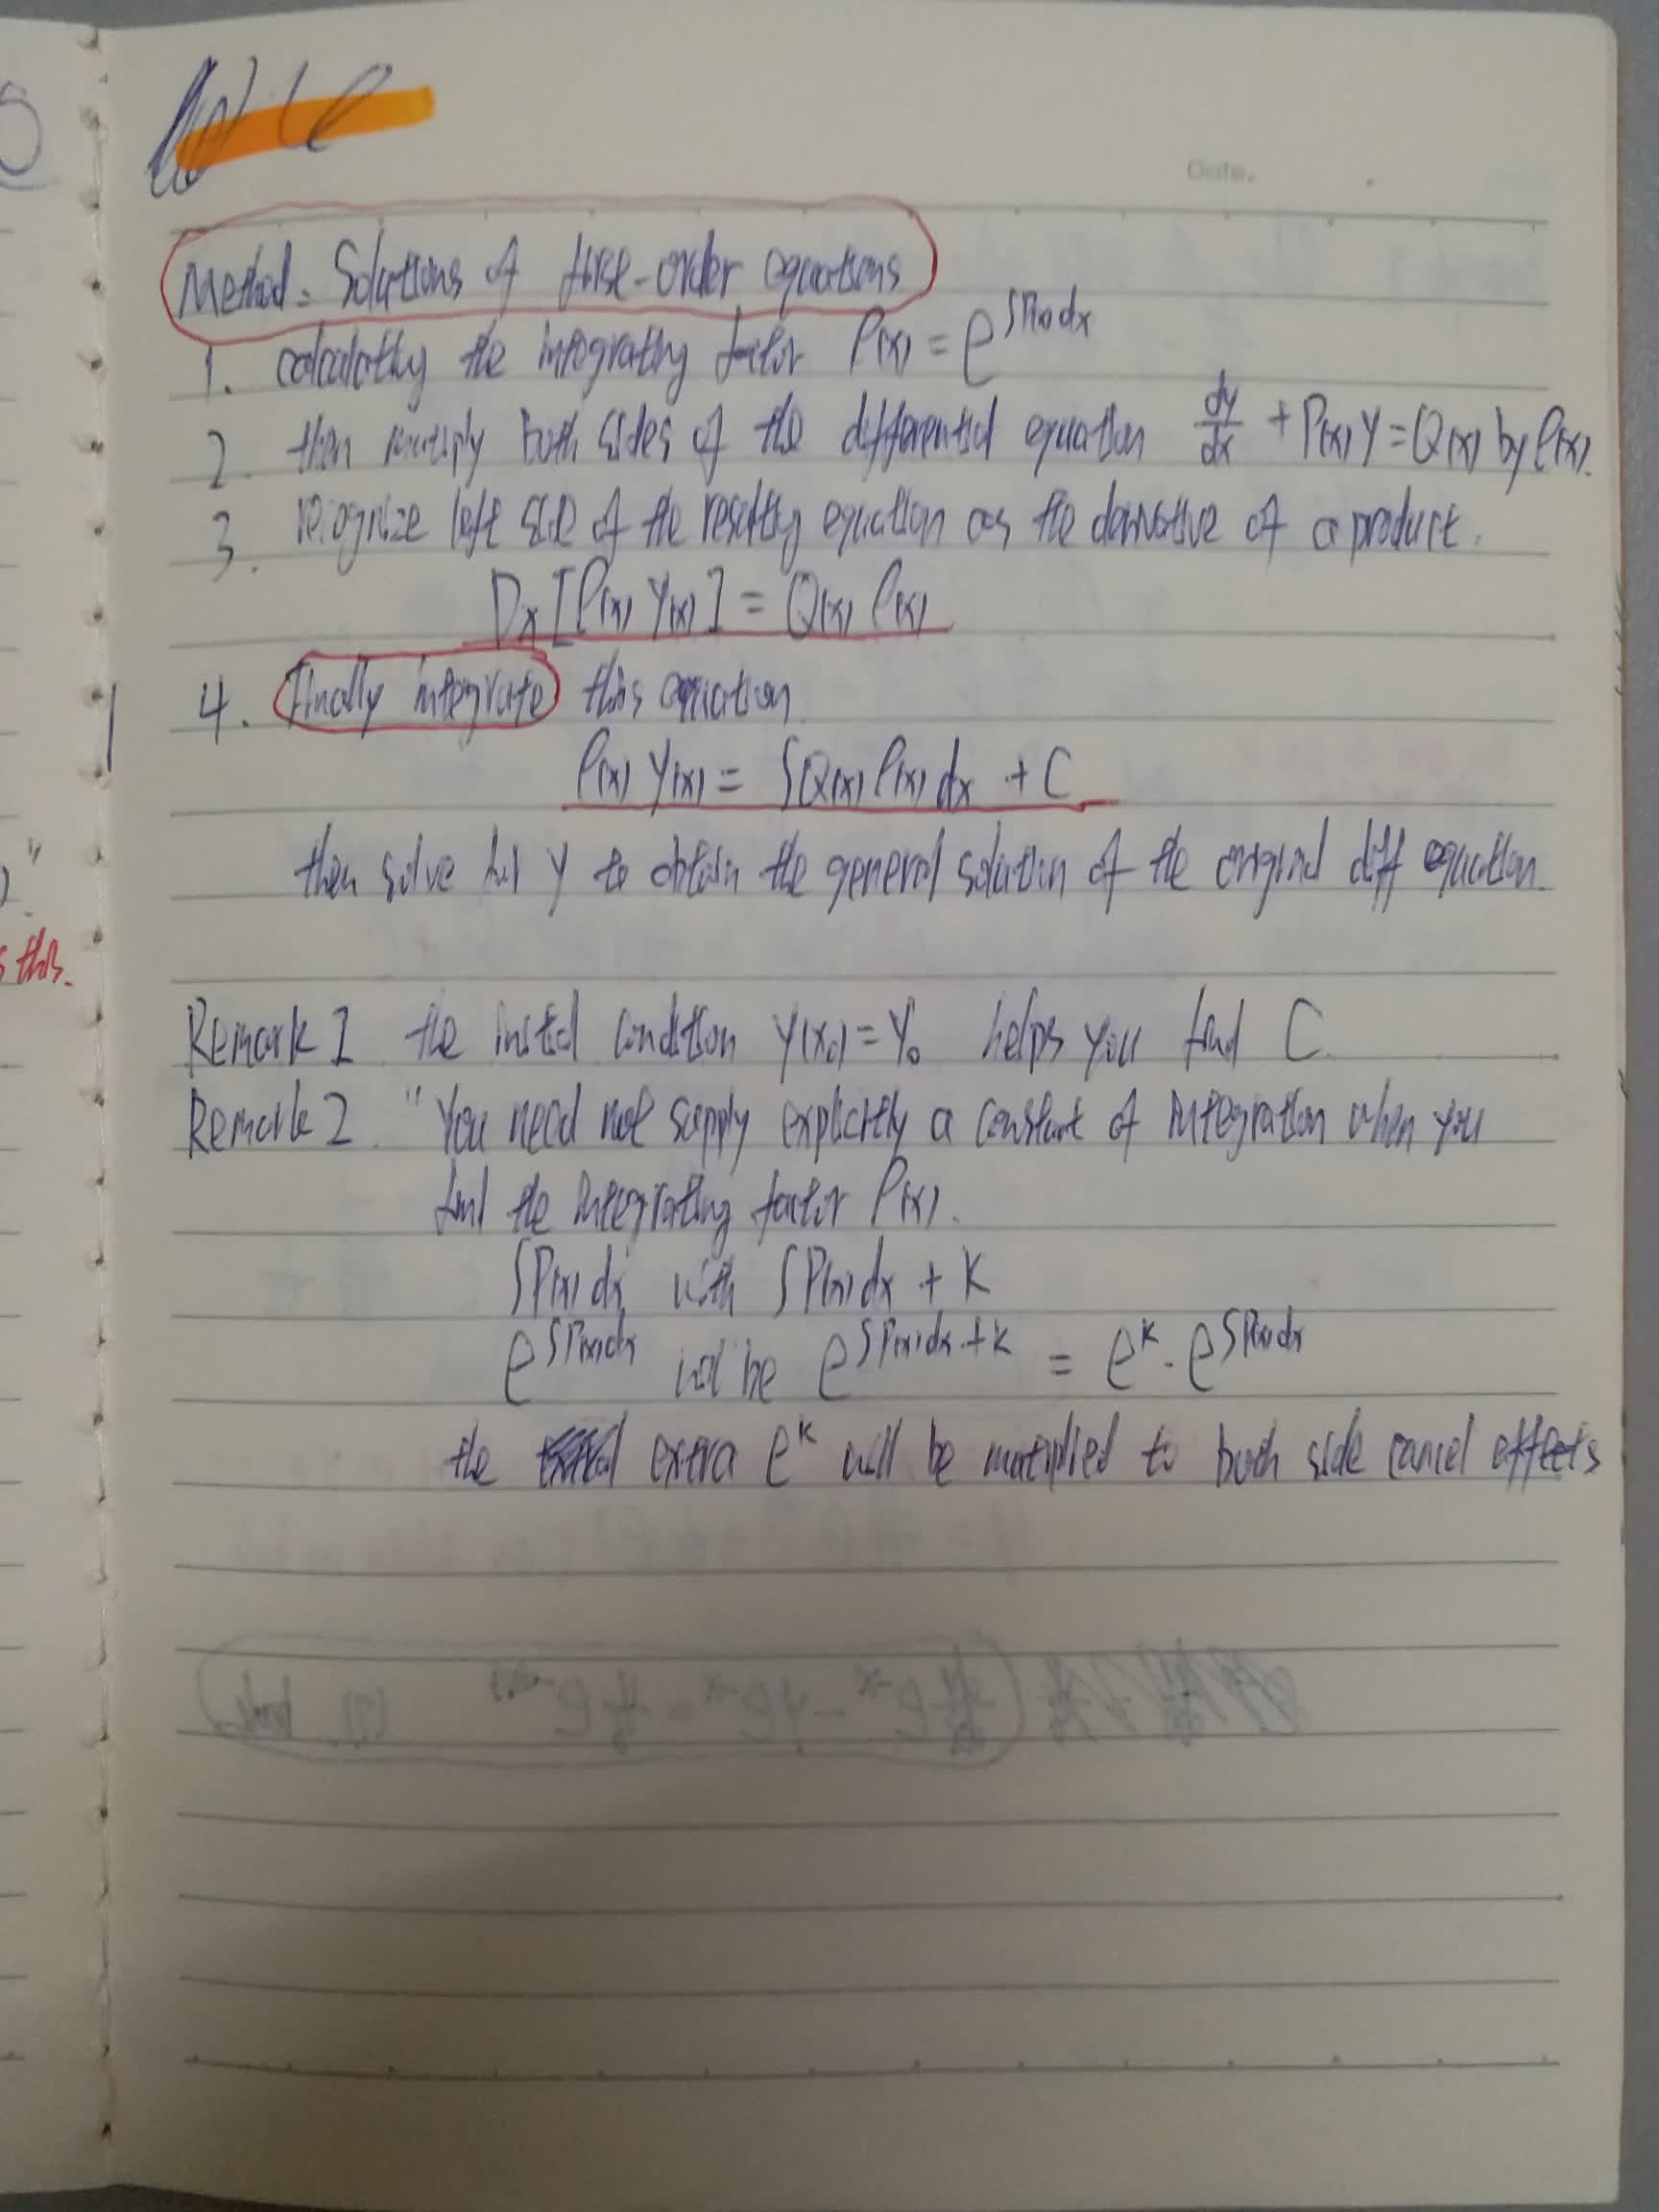 Note
Date.
Method: Solutions of first-order equations
1. calculating the integrating factor ρ(x) = e^∫P(x)dx
2. then multiply both sides of the differential equation dy/dx + P(x)y = Q(x) by ρ(x).
3. recognize left side of the resulting equation as the derivative of a product.
Dx [ρ(x) y(x)] = Q(x) ρ(x)
4. Finally integrate this equation
ρ(x) y(x) = ∫Q(x) ρ(x) dx + C
then solve for y to obtain the general solution of the original diff equation.
s this.
Remark 1 the initial condition y(x₀) = y₀ helps you find C.
Remark 2. "You need not supply explicitly a constant of integration when you
find the integrating factor ρ(x).
∫P(x)dx with ∫P(x)dx + K
e^∫P(x)dx will be e^∫P(x)dx+K = e^K · e^∫P(x)dx
the extra e^K will be multiplied to both side cancel effects